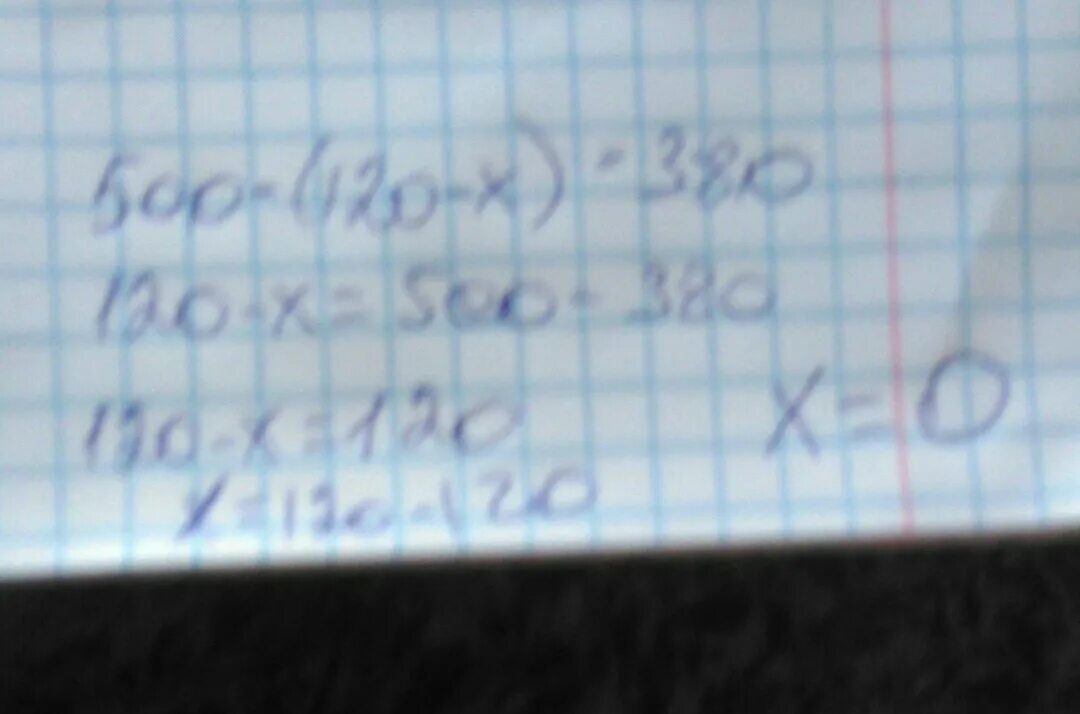 500-(120-x)=380
120-x=500-380
120-x=120
x=120-120
x=0